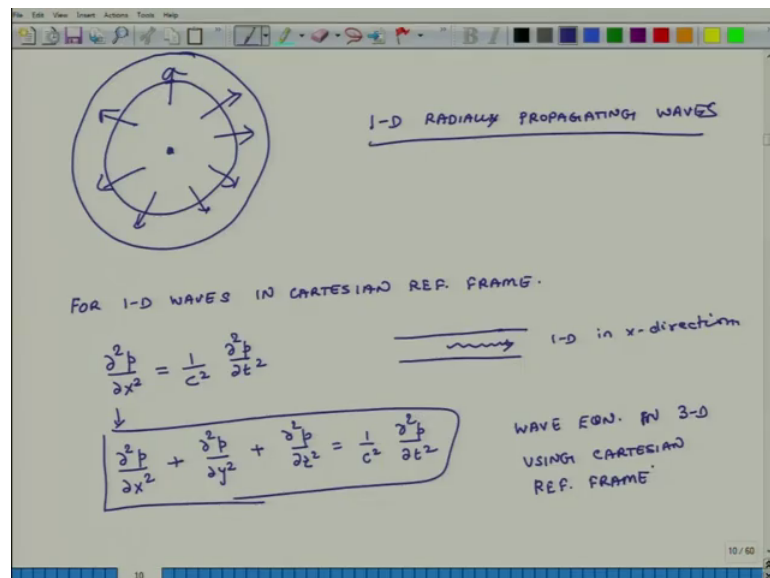 File Edit View Insert Actions Tools Help
B I
1-D RADIALLY PROPAGATING WAVES
FOR 1-D WAVES IN CARTESIAN REF. FRAME.
∂²p/∂x² = 1/c² ∂²p/∂t²
1-D in x-direction
∂²p/∂x² + ∂²p/∂y² + ∂²p/∂z² = 1/c² ∂²p/∂t²
WAVE EQN. IN 3-D
USING CARTESIAN
REF. FRAME
10 / 60
10